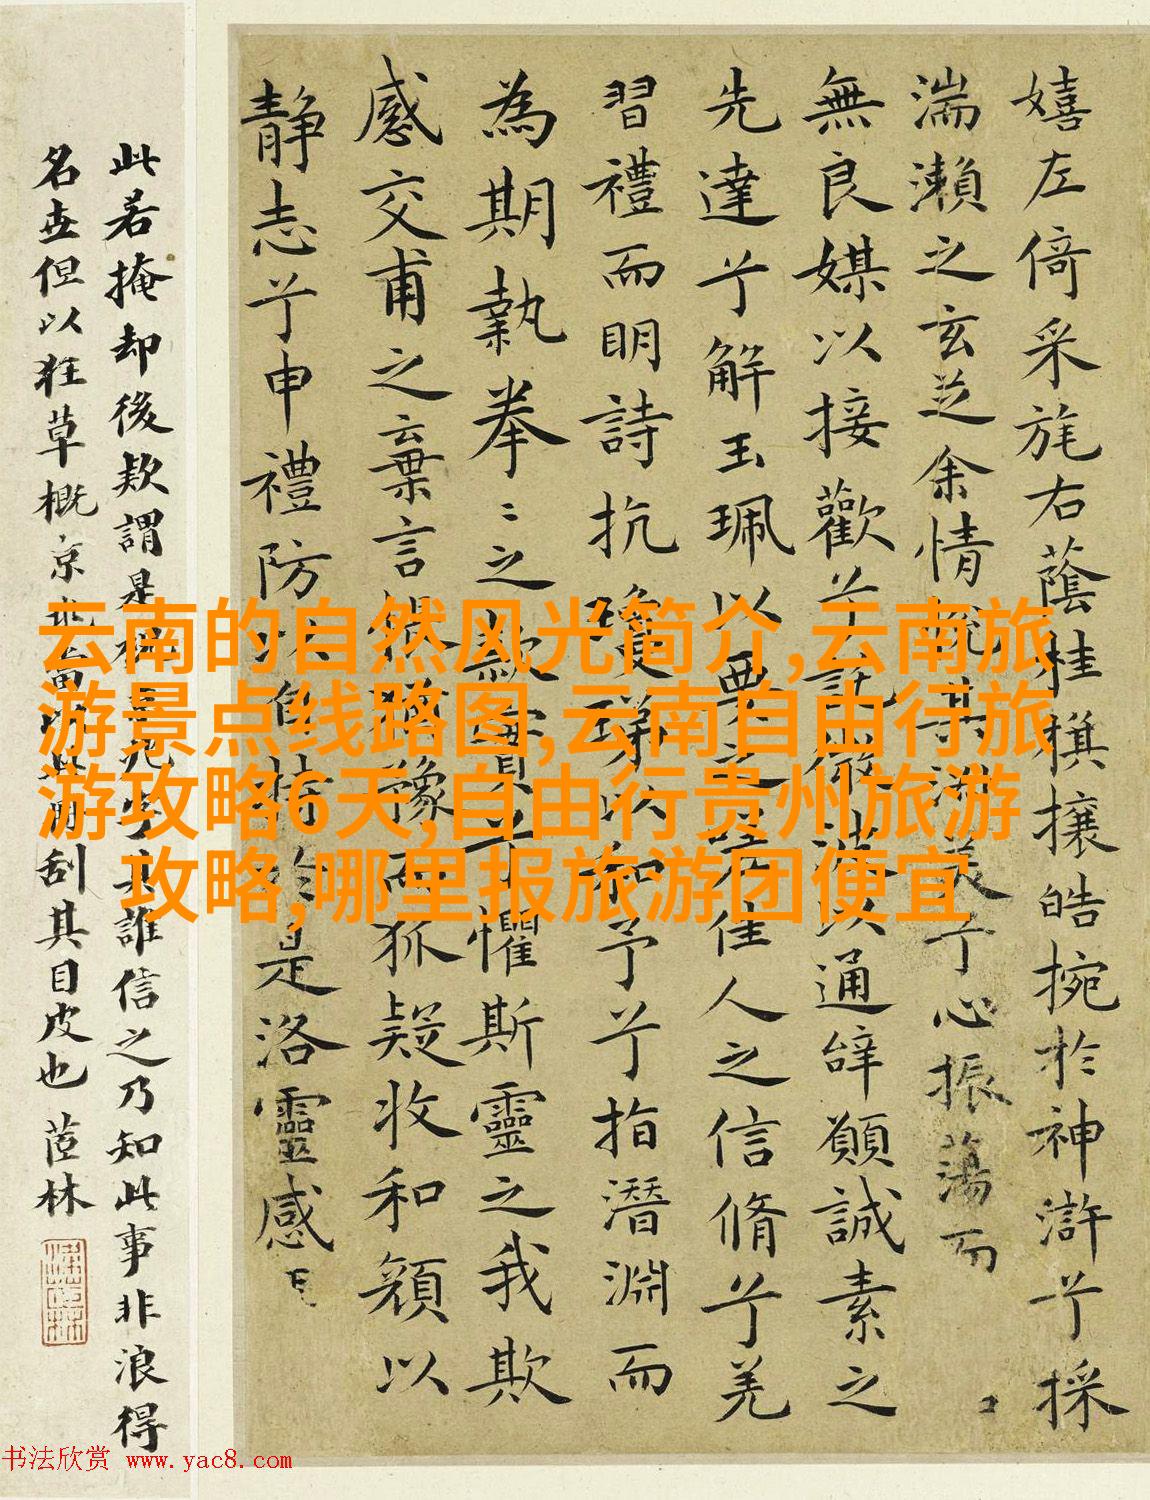 嬉左倚采旄右蔭桂旗攘皓捥於神滸兮採
湍瀨之玄芝余情悅其淑美兮心振蕩而
無良媒以接歡兮託微波以通辭願誠素之
先達兮解玉珮以要之嗟佳人之信脩兮羌
習禮而明詩抗瓊珶以和予兮指潛淵而
為期執拳〻之款實兮懼斯靈之我欺
感交甫之棄言悵猶豫而狐疑收和顏以
静志兮申禮防以自持於是洛靈感
此若掩却後欵謂是 誰信之乃知此事非浪得
名世但以狂草概京兆當 刮其目皮也 茝林
云南的自然风光简介,云南旅
游景点线路图,云南自由行旅
游攻略6天,自由行贵州旅游
攻略,哪里报旅游团便宜
书法欣赏 www.yac8.com